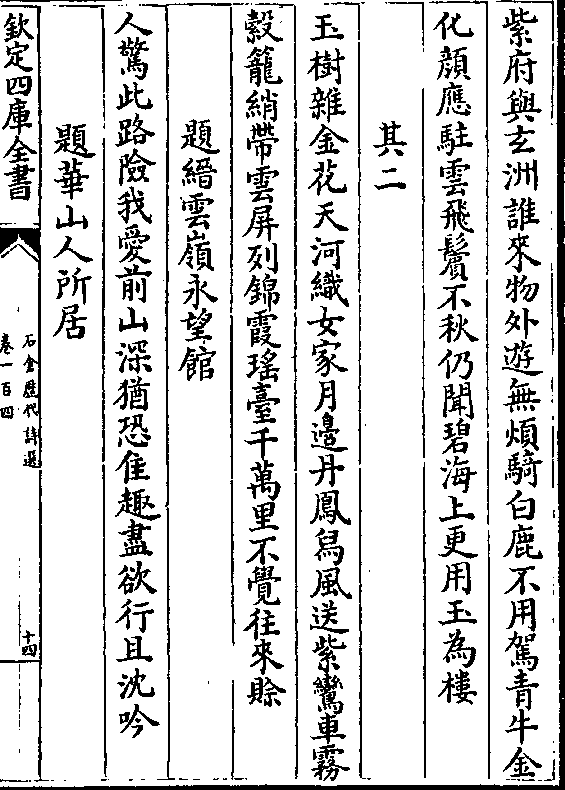 紫府與玄洲誰來物外遊無煩騎白鹿不用駕青牛金
化顔應駐雲飛鬢不秋仍聞碧海上更用玉為樓
其二
玉樹雜金花天河織女家月邉丹鳳舃風送紫鸞車霧
縠籠綃帶雲屏列錦霞瑤臺千萬里不覺往來賒
題縉雲嶺永望館
人驚此路險我愛前山深猶恐佳趣盡欲行且沈吟
題華山人所居
欽定四庫全書
石倉歴代詩選
卷一百四
十四